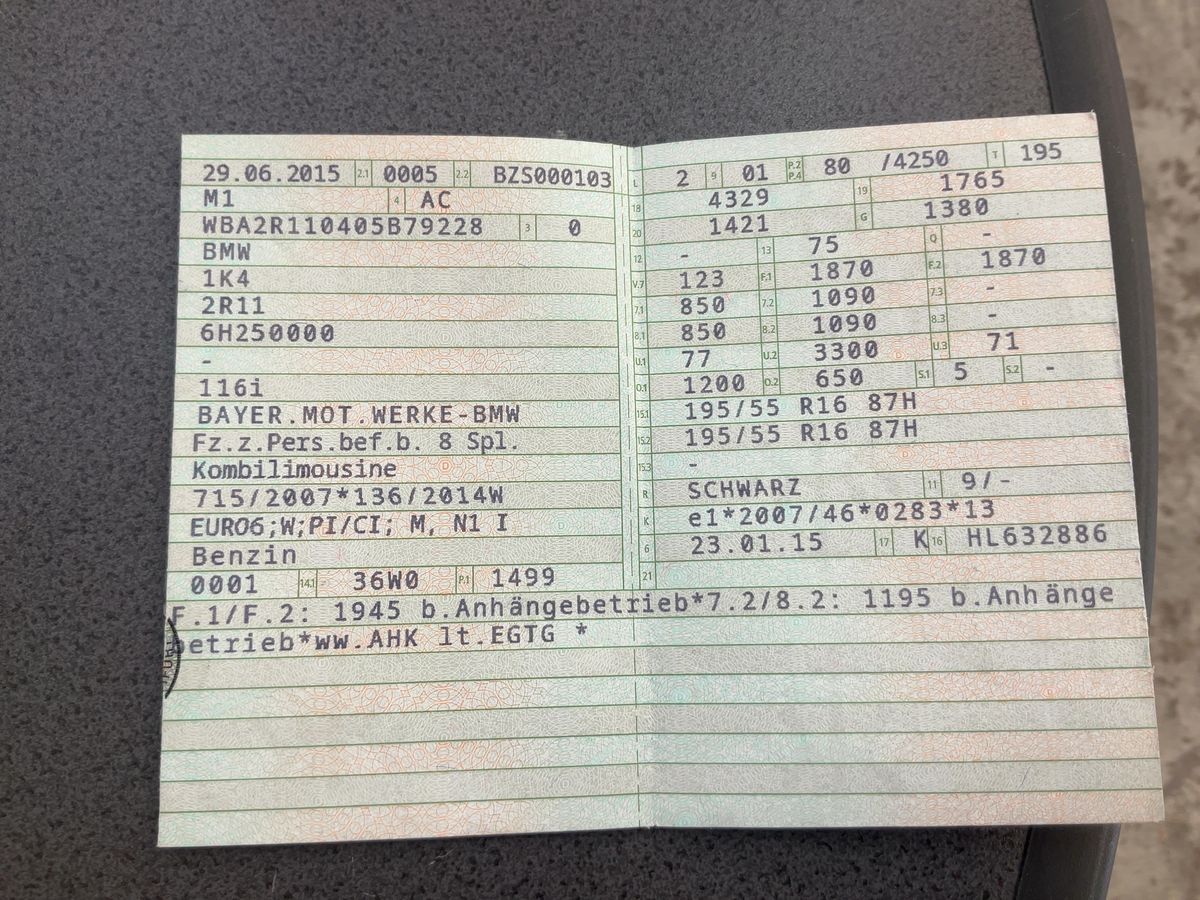 29.06.2015 2.1 0005 2.2 BZS000103
M1 4 AC
WBA2R110405B79228 3 0
BMW
1K4
2R11
6H250000
-
116i
BAYER.MOT.WERKE-BMW
Fz.z.Pers.bef.b. 8 Spl.
Kombilimousine
715/2007*136/2014W
EURO6;W;PI/CI; M, N1 I
Benzin
0001 14.1 36W0 P.1 1499
L 2 9 01 P.2 P.4 80 /4250 T 195
18 4329 19 1765
20 1421 G 1380
12 - 13 75 Q -
V.7 123 F.1 1870 F.2 1870
7.1 850 7.2 1090 7.3 -
8.1 850 8.2 1090 8.3 -
U.1 77 U.2 3300 U.3 71
O.1 1200 O.2 650 S.1 5 S.2 -
15.1 195/55 R16 87H
15.2 195/55 R16 87H
15.3 -
R SCHWARZ 11 9/-
K e1*2007/46*0283*13
6 23.01.15 17 K 16 HL632886
21
F.1/F.2: 1945 b.Anhängebetrieb*7.2/8.2: 1195 b.Anhänge
betrieb*ww.AHK lt.EGTG *